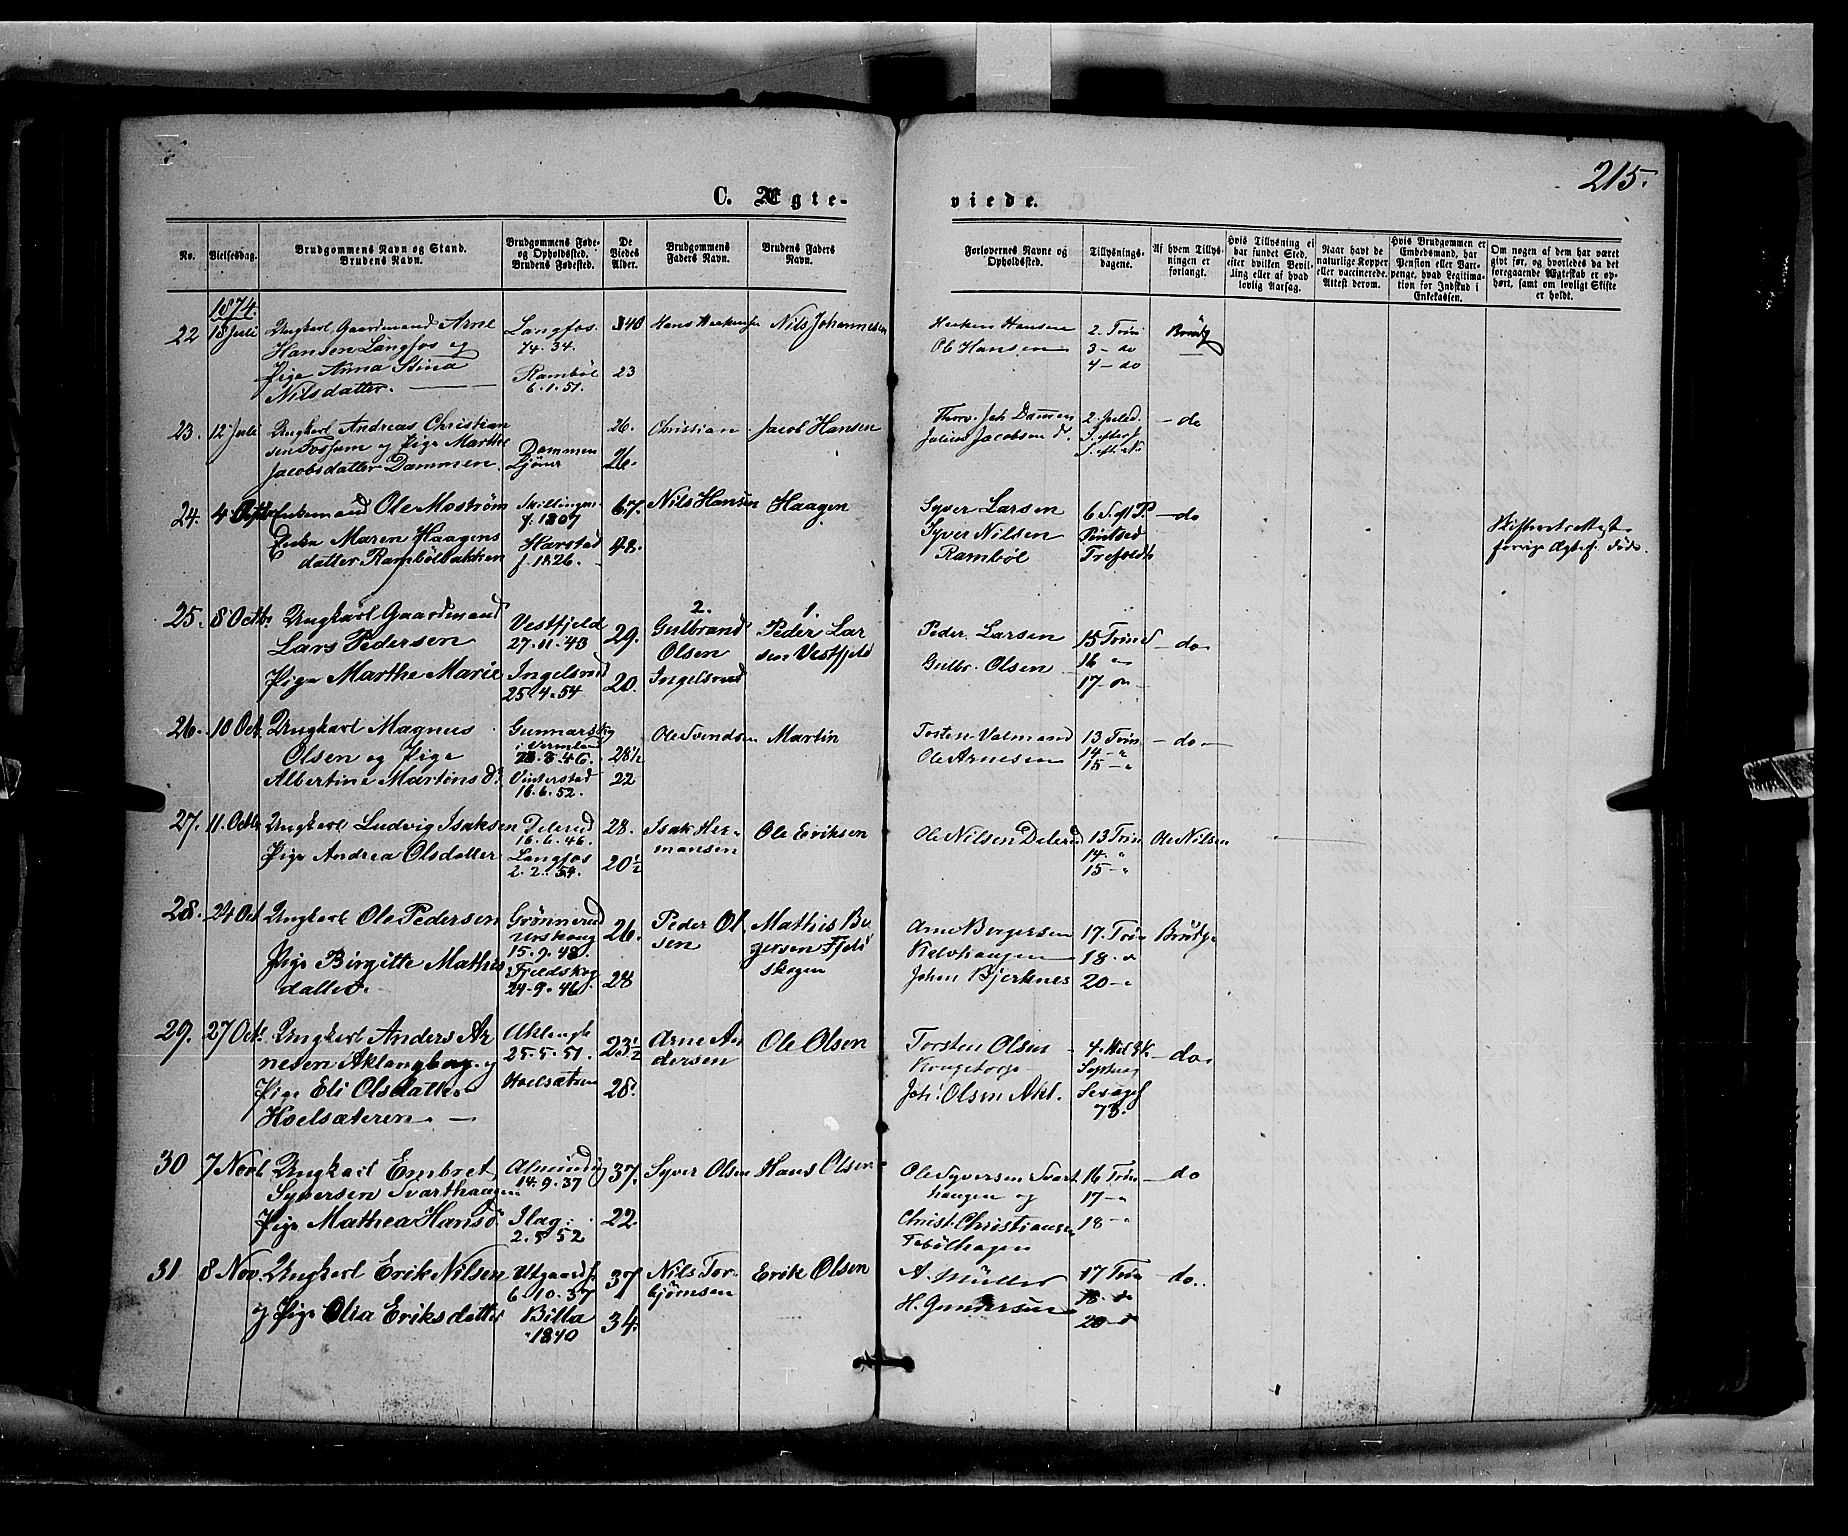 215.
C. Ægte-
viede.
No.
Vielsesdag.
Brudgommens Navn og Stand.
Brudens Navn.
Brudgommens Føde-
og Opholdssted.
Brudens Fødested.
De
Viedes
Alder.
Brudgommens
Faders Navn.
Brudens Faders
Navn.
Forlovernes Navne og
Opholdssted.
Tillysnings-
dagene.
Af hvem Tillys-
ningen er
forlangt.
Hvis Tillysning ei
har fundet Sted,
efter hvilken Bevil-
ling eller af hvad
lovlig Aarsag.
Naar havt de
naturlige Kopper
eller vaccinerede.
Attest derom.
Hvis Brudgommen er
Embedsmand, har
Pension eller Vart-
penge, hvad Legitima-
tion for Indskud i
Enkekassen.
Om nogen af dem har været
givt før, og hvorledes da det
foregaaende Ægteskab er op-
hørt, samt om lovligt Skifte
er holdt.
1874.
22 18 Juli Ungkarl Gaardmand Arne
Hansen Langfos og
Pige Anna Stina
Nilsdatter.
Langfos
34.
Rambøl
6.1.51.
40
23
Hans
Nils Johannesen
Hansen
Ole Hansen
2. Trin
3 - do
4 - do
Brudg
23. 12 Juli Ungkarl Andreas Christian
sen Fossum og Pige Marthe
Jacobsdatter Dammen.
Dammen
26.
26.
Christian
Jacob Hansen
Joh Dammen
Julius Jacobsen d.
- do
24. 4 Enkemand Ole Mostrøm
Enke Maren Haagens
datter Rambølbakken
f. 1807
Harstad
f. 1826.
67.
48.
Nils Hansen
Haagen
Syver Larsen
Syver Nilsen
Rambøl
6
- do
25. 8 Octb. Ungkarl Gaardmand
Lars Pedersen
Pige Marthe Marie
Vestfjeld
27.11.43
Ingelsrud
25.4.54
29.
20.
2.
Gulbrand
Olsen
Ingelsrud
1.
Peder Lar
sen Vestfjeld
Peder Larsen
Gulbr. Olsen
15 Trin
16
17
- do
26. 10 Oct. Ungkarl Magnus
Olsen og Pige
Albertine Martins d.
Gunnarskog
i Vermland
Vinterstad
16.6.52.
28½
22
Ole Svendsen
Martin
Tosten Valmand
Ole Arnesen
13 Trin
14 - "
15 - "
- do -
27. 11. Octb. Ungkarl Ludvig Isaksen
Pige Andrea Olsdatter
Delerud
16.6.46.
Langfos
2.2.54.
28.
20½
Isak Her-
mansen
Ole Eriksen
Ole Nilsen Delerud
13 Trin
14. "
15 - "
Ole Nilsen
28. 24 Oct. Ungkarl Ole Pedersen
Pige Birgitte Mathis
datter.
Grønnerud
Urskoug
15.9.48.
Fjeldskog
24.9.46.
26.
28
Peder Ol
sen
Mathis Be
gersen Fjeld
skogen
Arne Bergersen
Kalvhaugen
Johan Bjerknes
17. Trin
18. "
20 - "
Brudg.
29. 27 Oct. Ungkarl Anders Ar
nesen Aklangberg og
Pige Eli Olsdatter
Hoelsæteren.
25.5.51.
Hoelsæteren
23½
28.
Arne An
dersen
Ole Olsen
Torsten Olsen
Kongetorp
Joh. Olsen Akl.
- do.
30 7 Novb. Ungkarl Embret
Syversen Svarthaugen
Pige Mathea Hansd.
Almindig
14.9.37
Slag.
2.5.52
37.
22.
Syver Olsen
Hans Olsen
Ole Syversen Svart
haugen og
Christ. Christiansen
Tobølhagen
16 Trin
17 - "
18 - "
- do
31 8 Nov. Ungkarl Erik Nilsen
og Pige Olia Eriksdatter
Utgaard
6.10.37
Billa
1840
37
34.
Nils Tor-
bjørnsen
Erik Olsen
A. Müller
H. Gundersen
17 Trin
18. "
20 - "
- do.